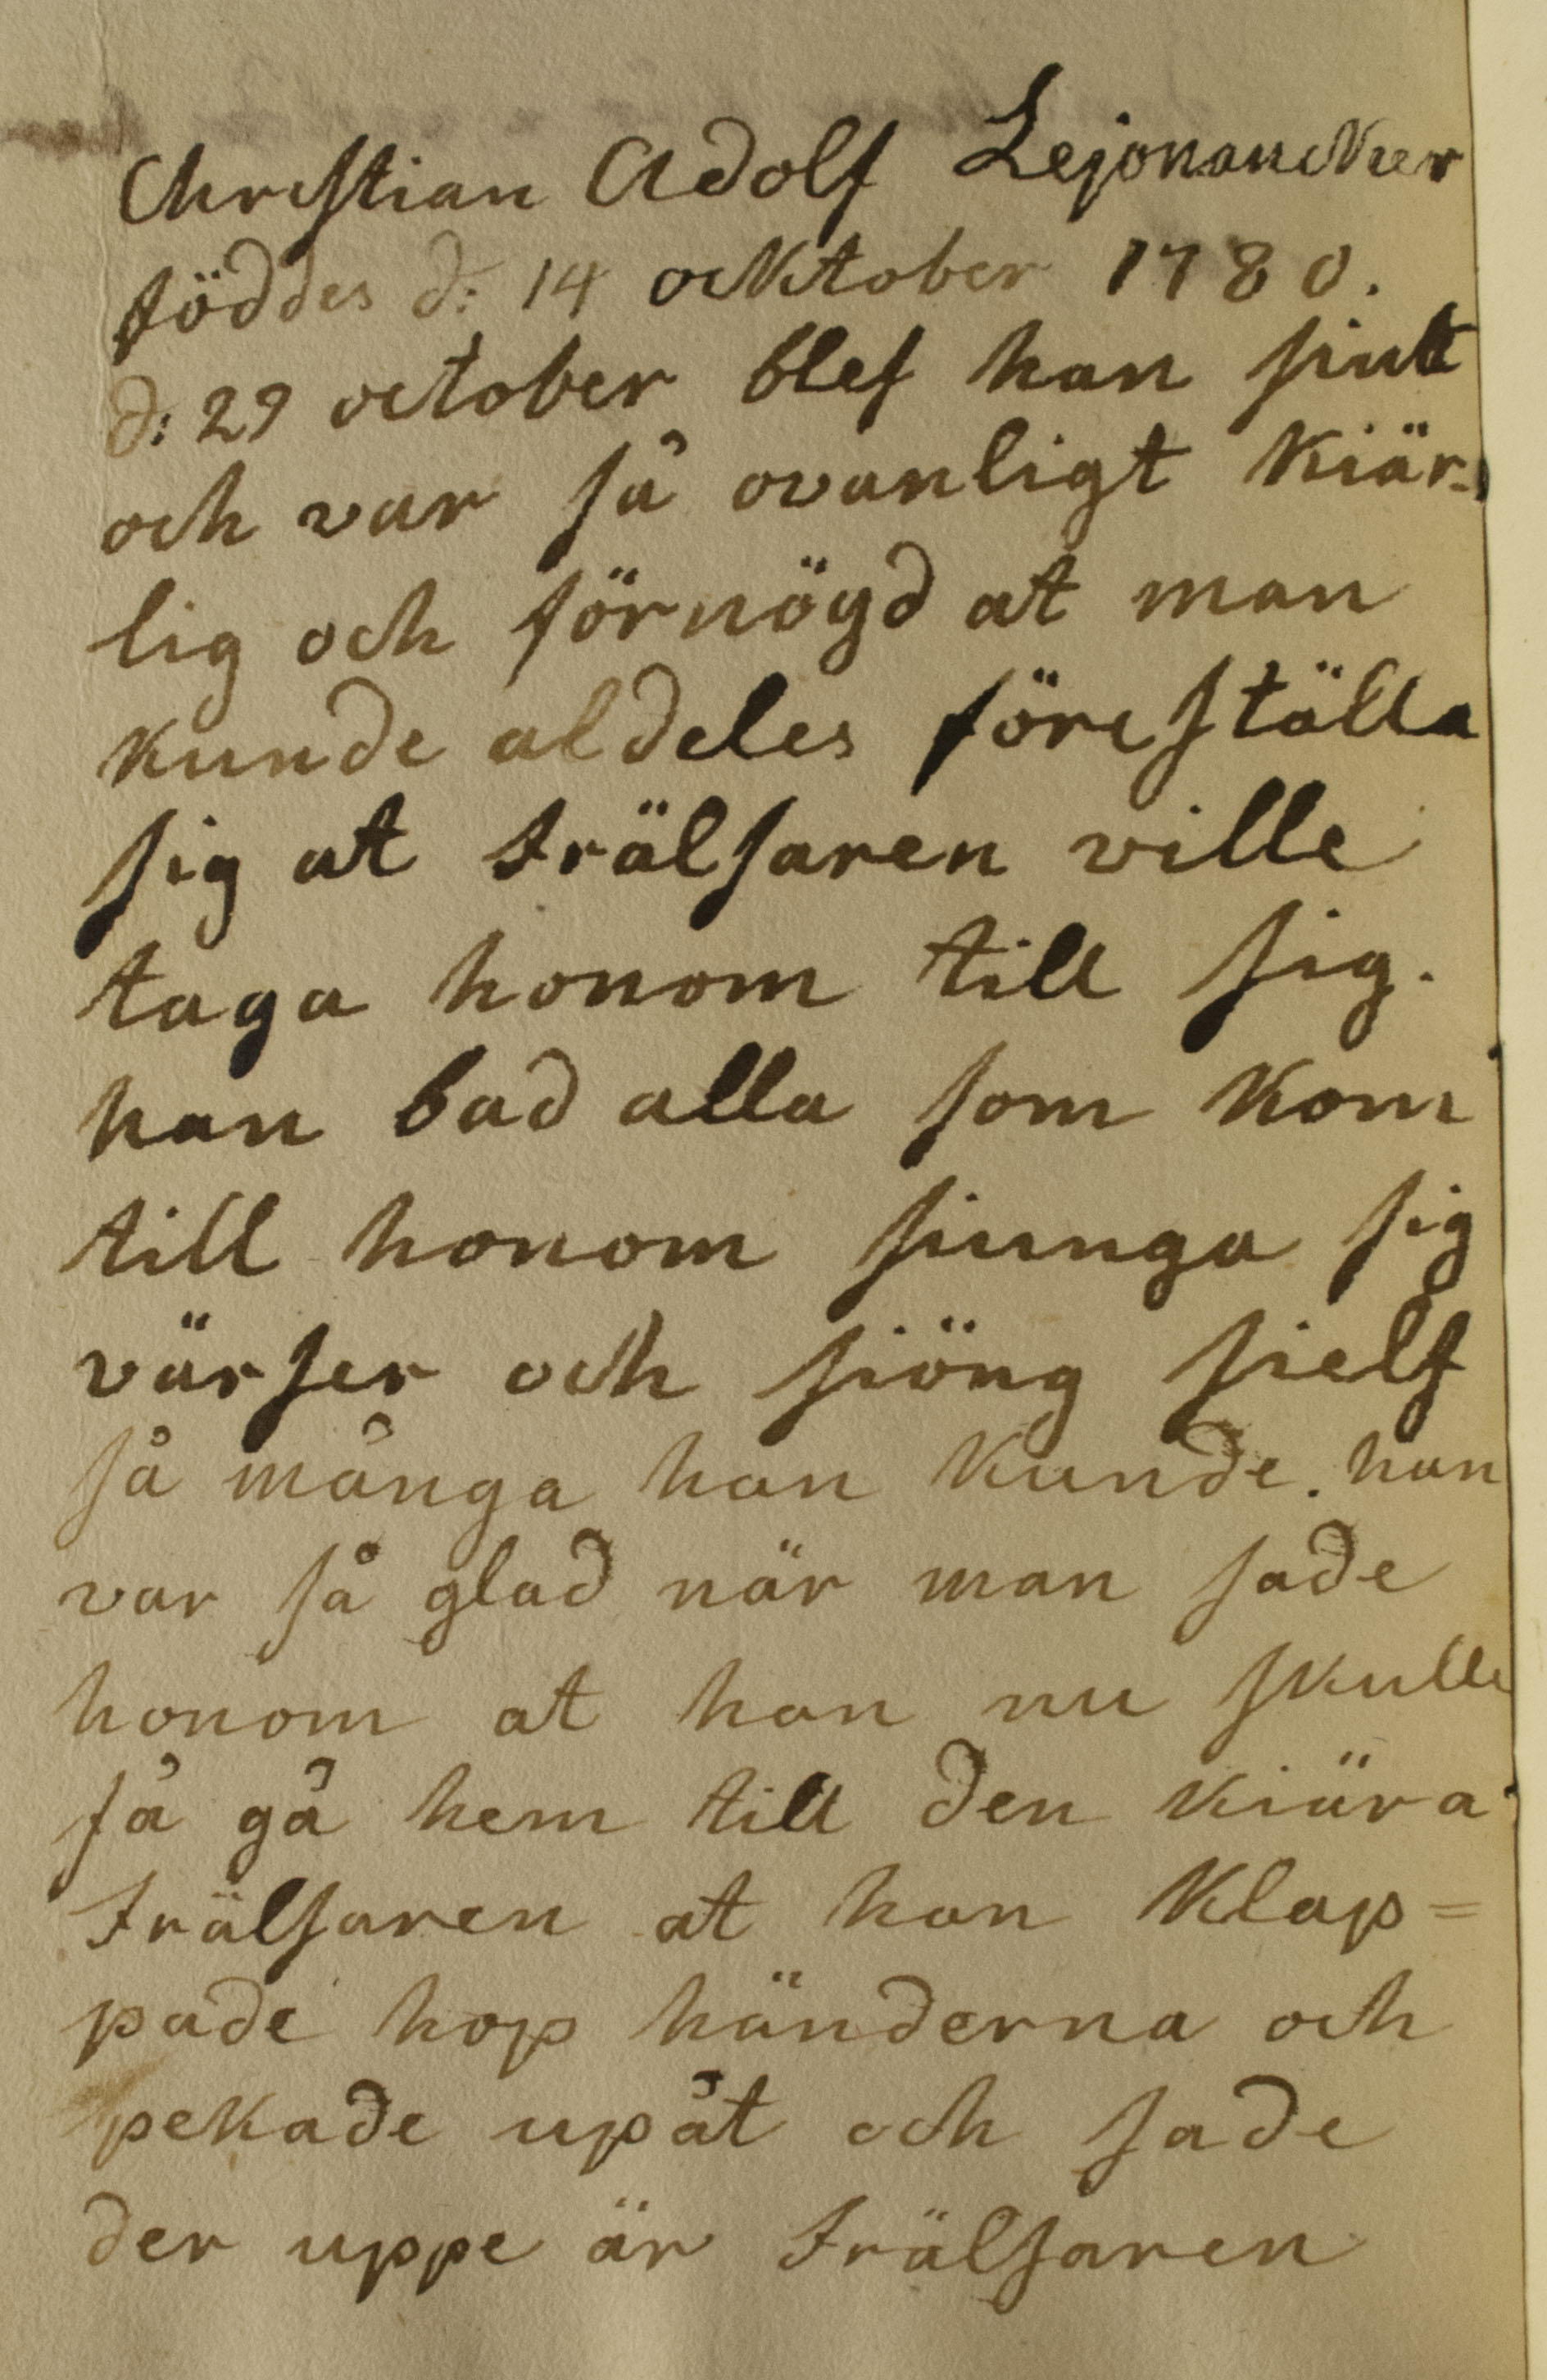 Christian Adolf Lejonancker
föddes d: 14 ocktober 1780.
d: 29 october blef han siuk
och var så ovanligt kiär-
lig och förnögd at man
kunde aldeles föreställa
sig at frälsaren ville
taga honom till sig.
han bad alla som kom
till honom siunga sig
värser och siöng sielf
så många han kunde. han
var så glad när man sade
honom at han nu skulle
få gå hem till den kiära
frälsaren at han klap=
pade hop händerna och
pekade upåt och sade
der uppe är frälsaren